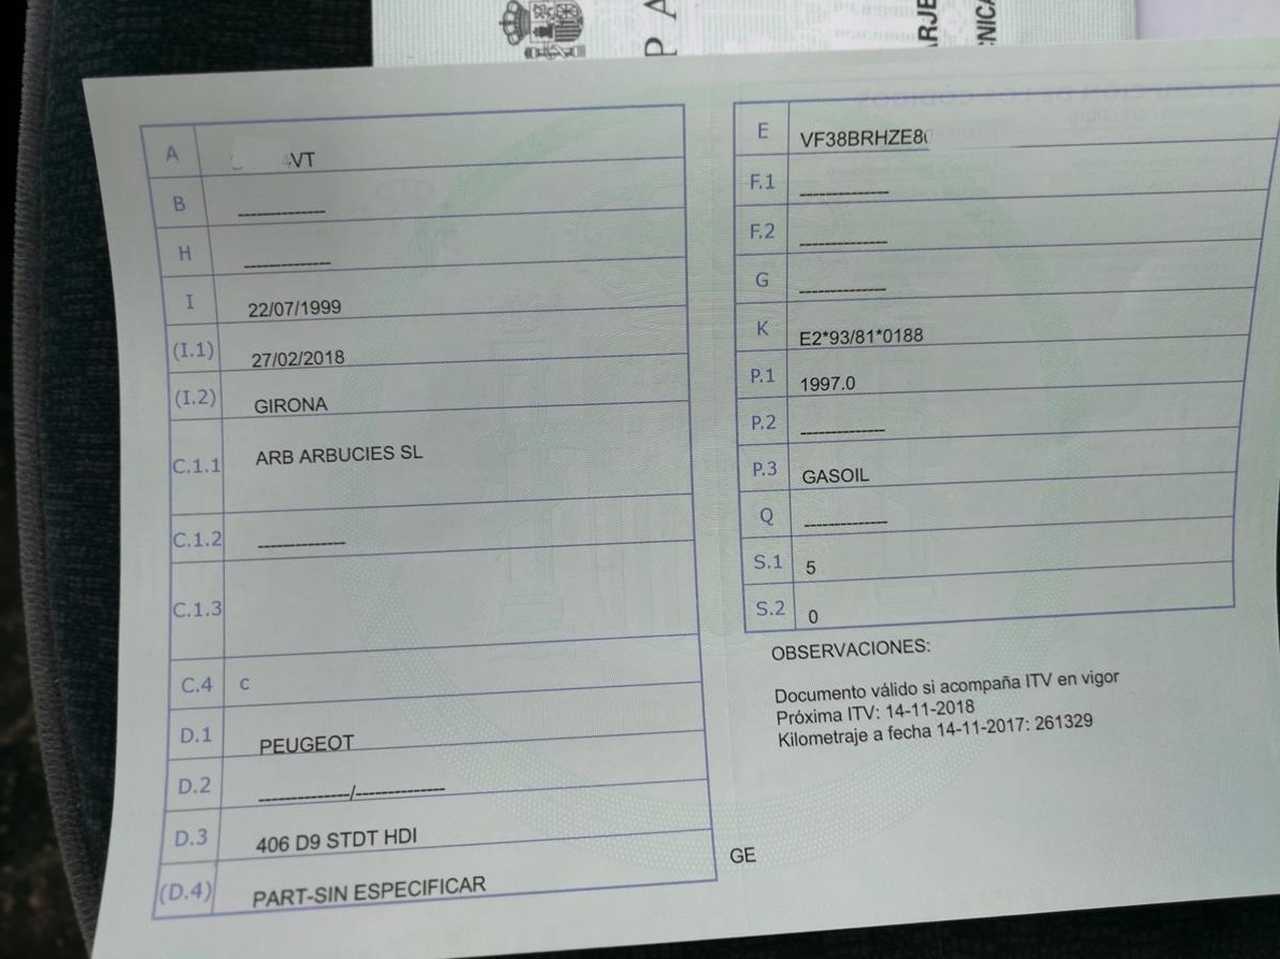 P A
ARJE
NICA
A VT
B -------------
H -------------
I 22/07/1999
(I.1) 27/02/2018
(I.2) GIRONA
C.1.1 ARB ARBUCIES SL
C.1.2 -------------
C.1.3
C.4 C
D.1 PEUGEOT
D.2 -------------/-------------
D.3 406 D9 STDT HDI
(D.4) PART-SIN ESPECIFICAR
E VF38BRHZE8
F.1 -------------
F.2 -------------
G -------------
K E2*93/81*0188
P.1 1997.0
P.2 -------------
P.3 GASOIL
Q -------------
S.1 5
S.2 0
OBSERVACIONES:
Documento válido si acompaña ITV en vigor
Próxima ITV: 14-11-2018
Kilometraje a fecha 14-11-2017: 261329
GE